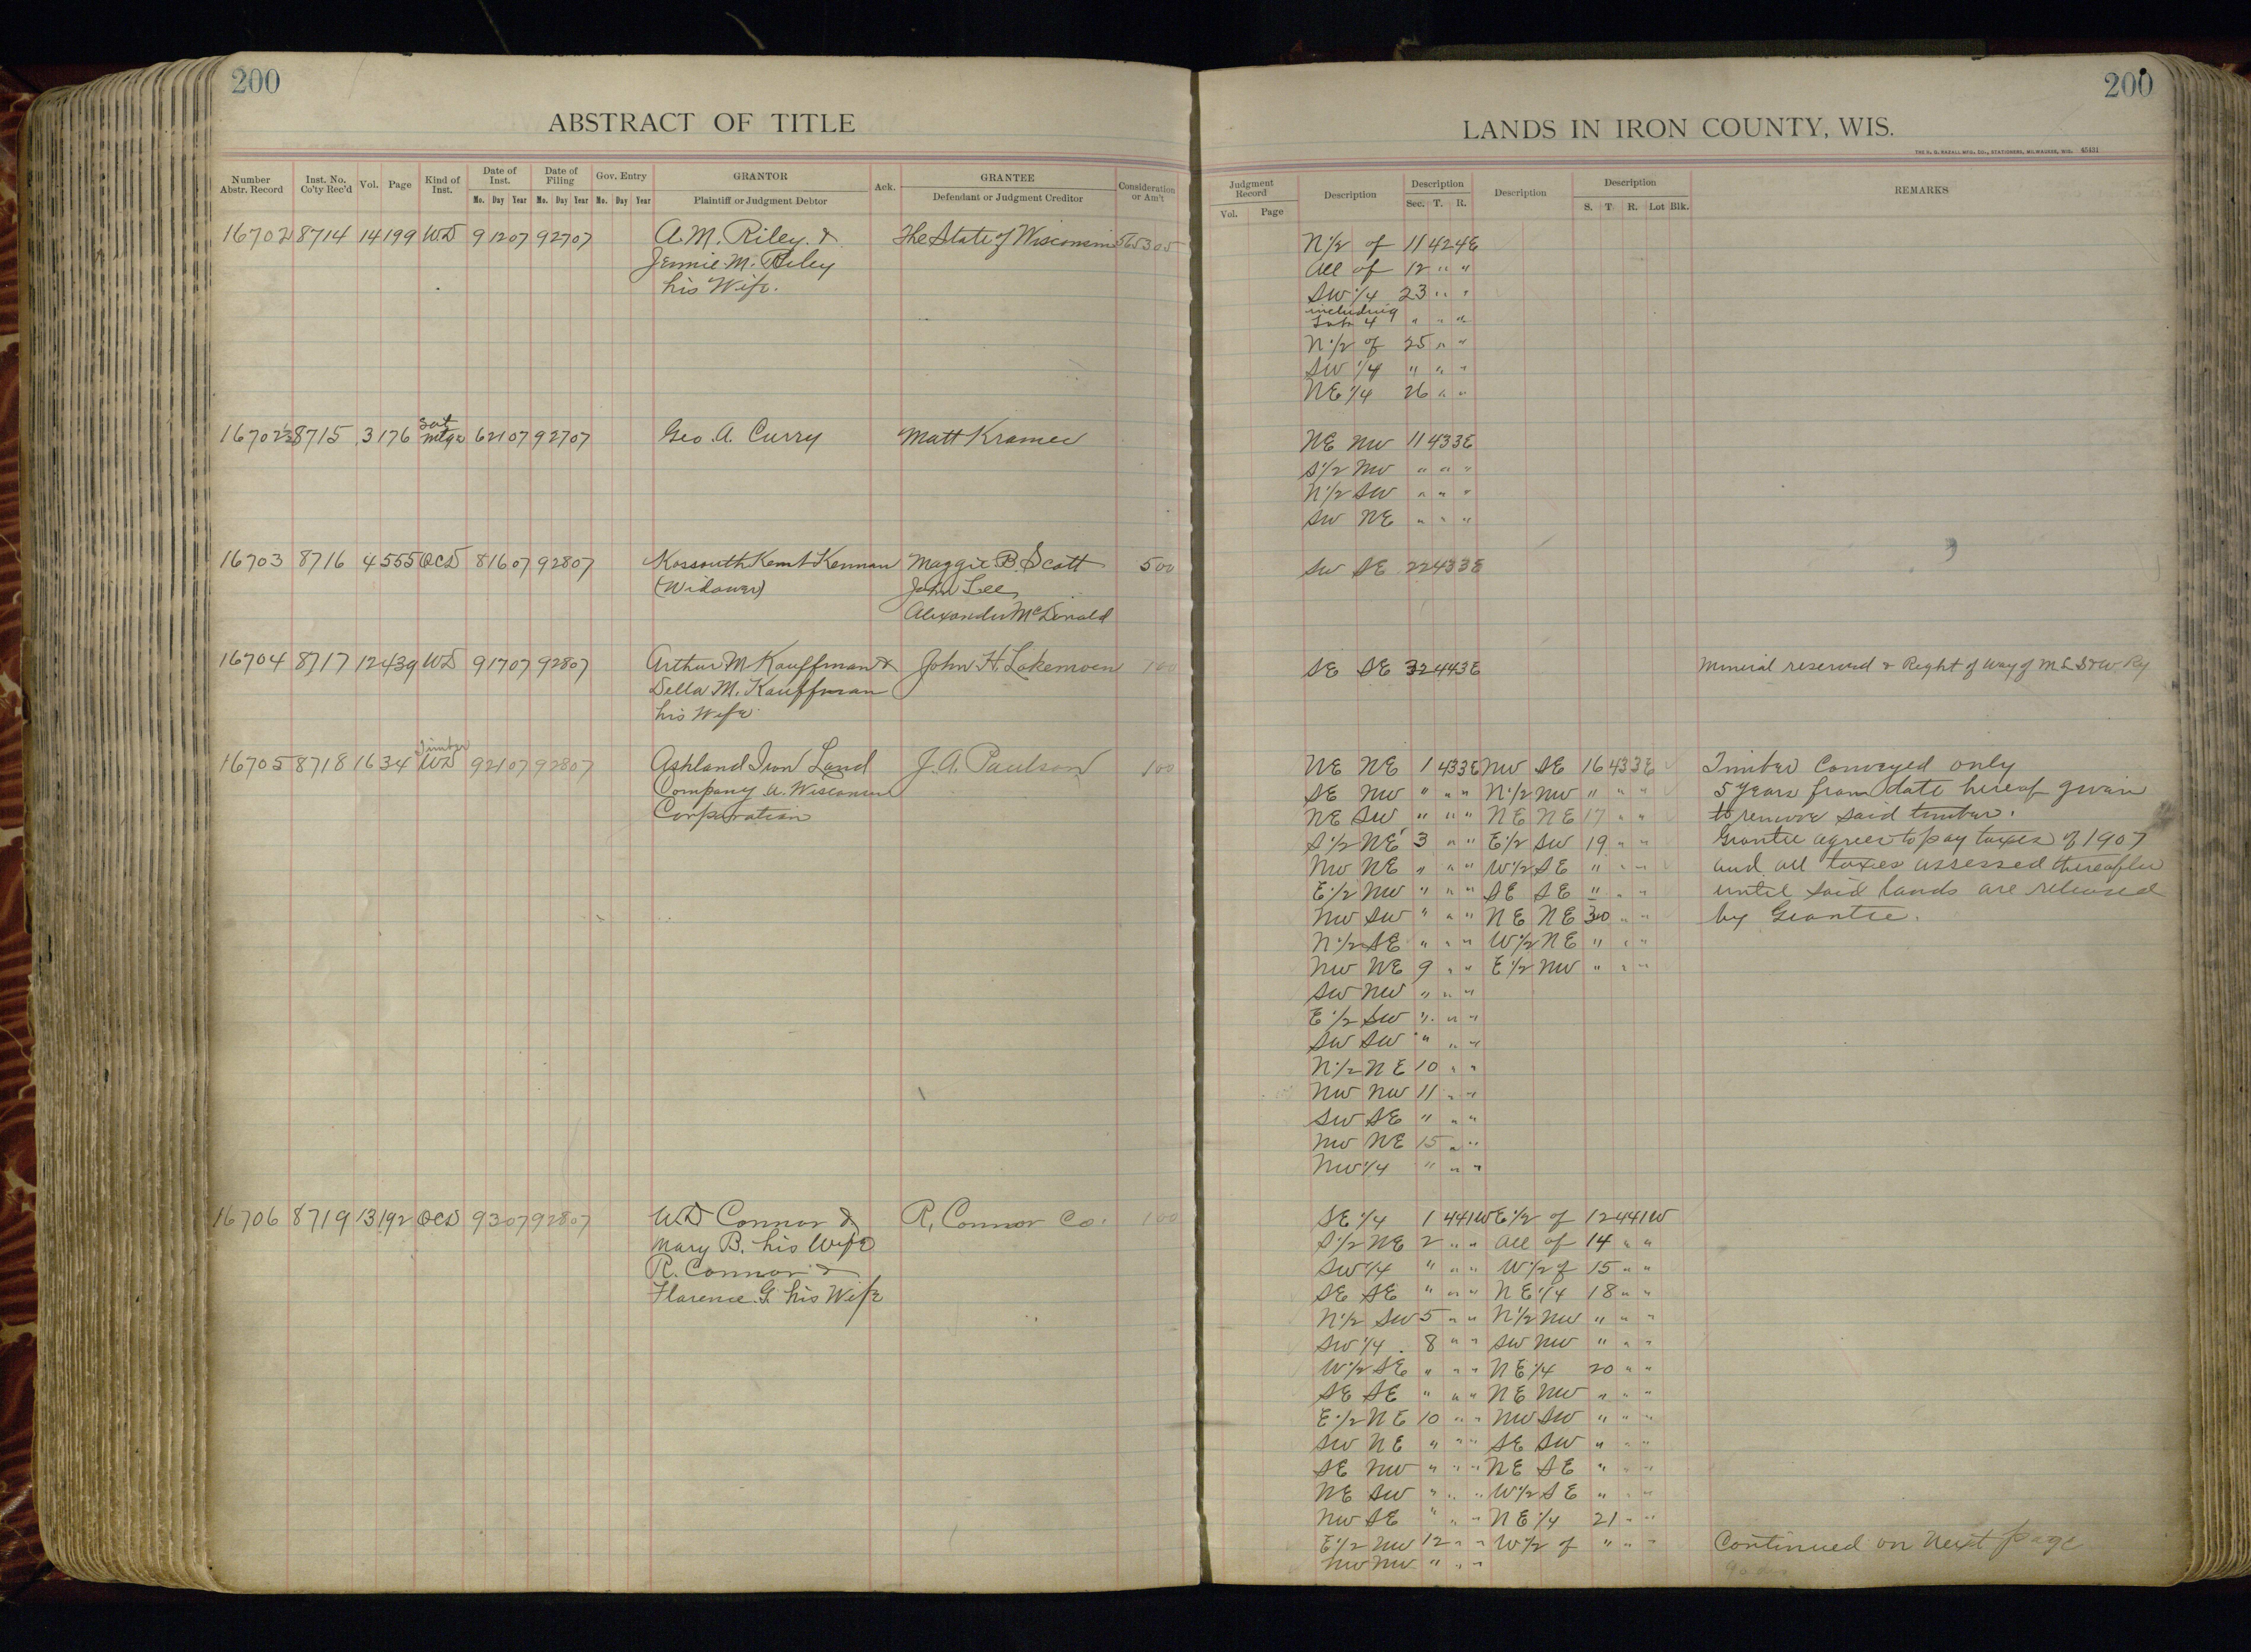 200
ABSTRACT OF TITLE
Number Abstr. Record Inst. No. Co'ty Rec'd Vol. Page Kind of Inst. Date of Inst. Mo. Day Year Date of Filing Mo. Day Year Gov. Entry Mo. Day Year GRANTOR Plaintiff or Judgment Debtor Ack. GRANTEE Defendant or Judgment Creditor Consideration or Am't
16702 8714 14 199 WD 9 12 07 9 27 07 A. M. Riley & The State of Wisconsin 5653 05
Jennie M. Riley
his Wife.
16702½ 8715 3 176 Sat Mtge 6 21 07 9 27 07 Geo. A. Curry Matt Kramer
16703 8716 4 555 QCD 8 16 07 9 28 07 Kossouth Kent Kennan Maggie B. Scott 5 00
(Widower) John Lee,
Alexander McDonald
16704 8717 12 439 WD 9 17 07 9 28 07 Arthur M Kauffman & John H. Lakemoen 1 00
Della M. Kauffman
his Wife
16705 8718 16 34 Timber WD 9 21 07 9 28 07 Ashland Iron Land J. A. Paulson 1 00
Company a Wisconsin
Corporation
16706 8719 13 192 QCD 9 3 07 9 28 07 W.D Connor & R. Connor Co. 1 00
Mary B. his Wife
R. Connor &
Florence G. his Wife
200
LANDS IN IRON COUNTY, WIS.
THE H. G. RAZALL MFG. CO., STATIONERS, MILWAUKEE, WIS. 45431
Judgment Record Vol. Page Description Description Sec. T. R. Description Description S. T. R. Lot Blk. REMARKS
N 1/2 of 11 42 4E
All of 12 " "
SW 1/4 23 " "
including
Lot 4 " " "
N 1/2 of 25 " "
SW 1/4 " " "
NE 1/4 26 " "
NE NW 11 43 3E
S 1/2 NW " " "
N 1/2 SW " " "
SW NE " " "
SW SE 22 43 3E
SE SE 32 44 3E Mineral reserved & Right of Way of M L S & W. Ry
NE NE 1 43 3E NW SE 16 43 3E Timber Conveyed only
SE NW " " " N 1/2 NW " " " 5 years from date hereof given
NE SW " " " NE NE 17 " " to remove said timber.
S 1/2 NE 3 " " E 1/2 SW 19 " " Grantee agrees to pay taxes of 1907
NW NE " " " W 1/2 SE " " " and all taxes assessed thereafter
E 1/2 NW " " " SE SE " " " until said lands are released
NW SW " " " NE NE 30 " " by Grantee.
N 1/2 SE " " " W 1/2 NE " " "
NW NE 9 " " E 1/2 NW " " "
SW NW " " "
E 1/2 SW " " "
SW SW " " "
N 1/2 NE 10 " "
NW NW 11 " "
SW SE " " "
NW NE 15 " "
NW 1/4 " " "
SE 1/4 1 44 1W E 1/2 of 12 44 1W
S 1/2 NE 2 " " All of 14 " "
SW 1/4 " " " W 1/2 of 15 " "
SE SE " " " NE 1/4 18 " "
N 1/2 SW 5 " " N 1/2 NW " " "
SW 1/4 8 " " SW NW " " "
W 1/2 SE " " " NE 1/4 20 " "
SE SE " " " NE NW " " "
E 1/2 NE 10 " " NW SW " " "
SW NE " " " SE SW " " "
SE NW " " " NE SE " " "
NE SW " " " W 1/2 SE " " "
NW SE " " " NE 1/4 21 " "
E 1/2 NW 12 " " W 1/2 of " " " Continued on Next page
NW NW " " "